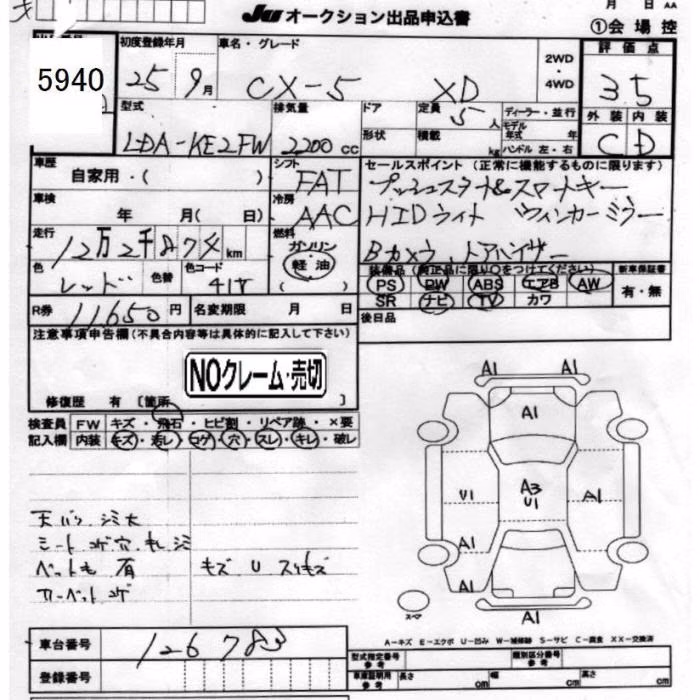 月 日 AA
JU オークション出品申込書
①会場控
5940
初度登録年月
25 9月
車名・グレード
CX-5 XD
2WD・4WD
評価点
35
型式
LDA-KE2FW
排気量
2200 cc
ドア
形状
定員
5人
積載
kg
ディーラー・並行
モデル年式 年
ハンドル 左・右
外装 内装
C D
車歴
自家用・( )
シフト
FAT
セールスポイント（正常に機能するものに限ります）
プッシュスタート&スマートキー
車検
年 月( 日)
冷房
AAC
HIDライト ウィンカーミラー
走行
12万2千874km
燃料
ガソリン
軽油
( )
Bカメラ、ドアバイザー
色
レッド
色替
色コード
41V
装備品（純正品に限り○をつけてください）
新車保証書
PS PW ABS エアB AW
SR ナビ TV カワ
有・無
R券
11650円
名変期限 月 日
後日品
注意事項申告欄（不具合内容等は具体的に記入して下さい）
NOクレーム・売切
修復歴 有 [箇所 ]
検査員記入欄
FW キズ・飛石・ヒビ割・リペア跡・×要
内装 キズ・汚レ・コゲ・穴・スレ・キレ・破レ
A1 A1
A1
U1
A3
U1
A1
A1
A1
A1
スペア
シートコゲ穴、キレ、シミ
ペット毛 有
キズ U スリキズ
カーペットコゲ
A-キズ E-エクボ U-凹み W-補修跡 S-サビ C-腐食 XX-交換済
車台番号
126783
型式指定番号 参考
類別区分番号 参考
登録番号
車庫証明用 参考
長さ cm
幅 cm
高さ cm